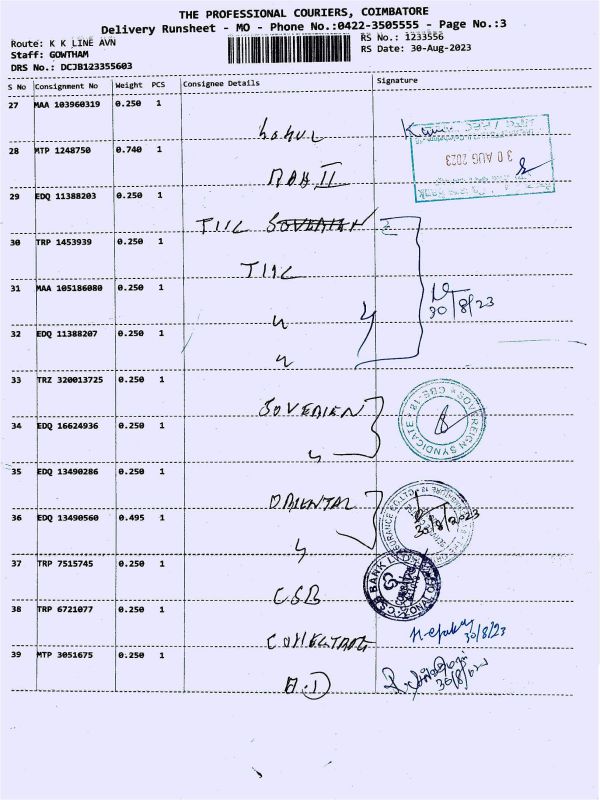 THE PROFESSIONAL COURIERS, COIMBATORE
Delivery Runsheet - MO - Phone No.:0422-3505555 - Page No.:3
Route: K K LINE AVN
RS No.: 1233556
Staff: GOWTHAM
RS Date: 30-Aug-2023
DRS No.: DCJB123355603
S No Consignment No Weight PCS Consignee Details Signature
27 MAA 103960319 0.250 1
28 MTP 1248750 0.740 1
30 AUG 2023
29 EDQ 11388203 0.250 1
TIIC
30 TRP 1453939 0.250 1
TIIC
31 MAA 105186080 0.250 1
30/8/23
32 EDQ 11388207 0.250 1
33 TRZ 320013725 0.250 1
SOVERIEN
SOVEREIGN SYNDICATE * CBE-18 *
34 EDQ 16624936 0.250 1
35 EDQ 13490286 0.250 1
ORIENTAL
30/8/2023
36 EDQ 13490560 0.495 1
37 TRP 7515745 0.250 1
CSB
CSB BANK LTD
38 TRP 6721077 0.250 1
30/8/23
39 MTP 3051675 0.250 1